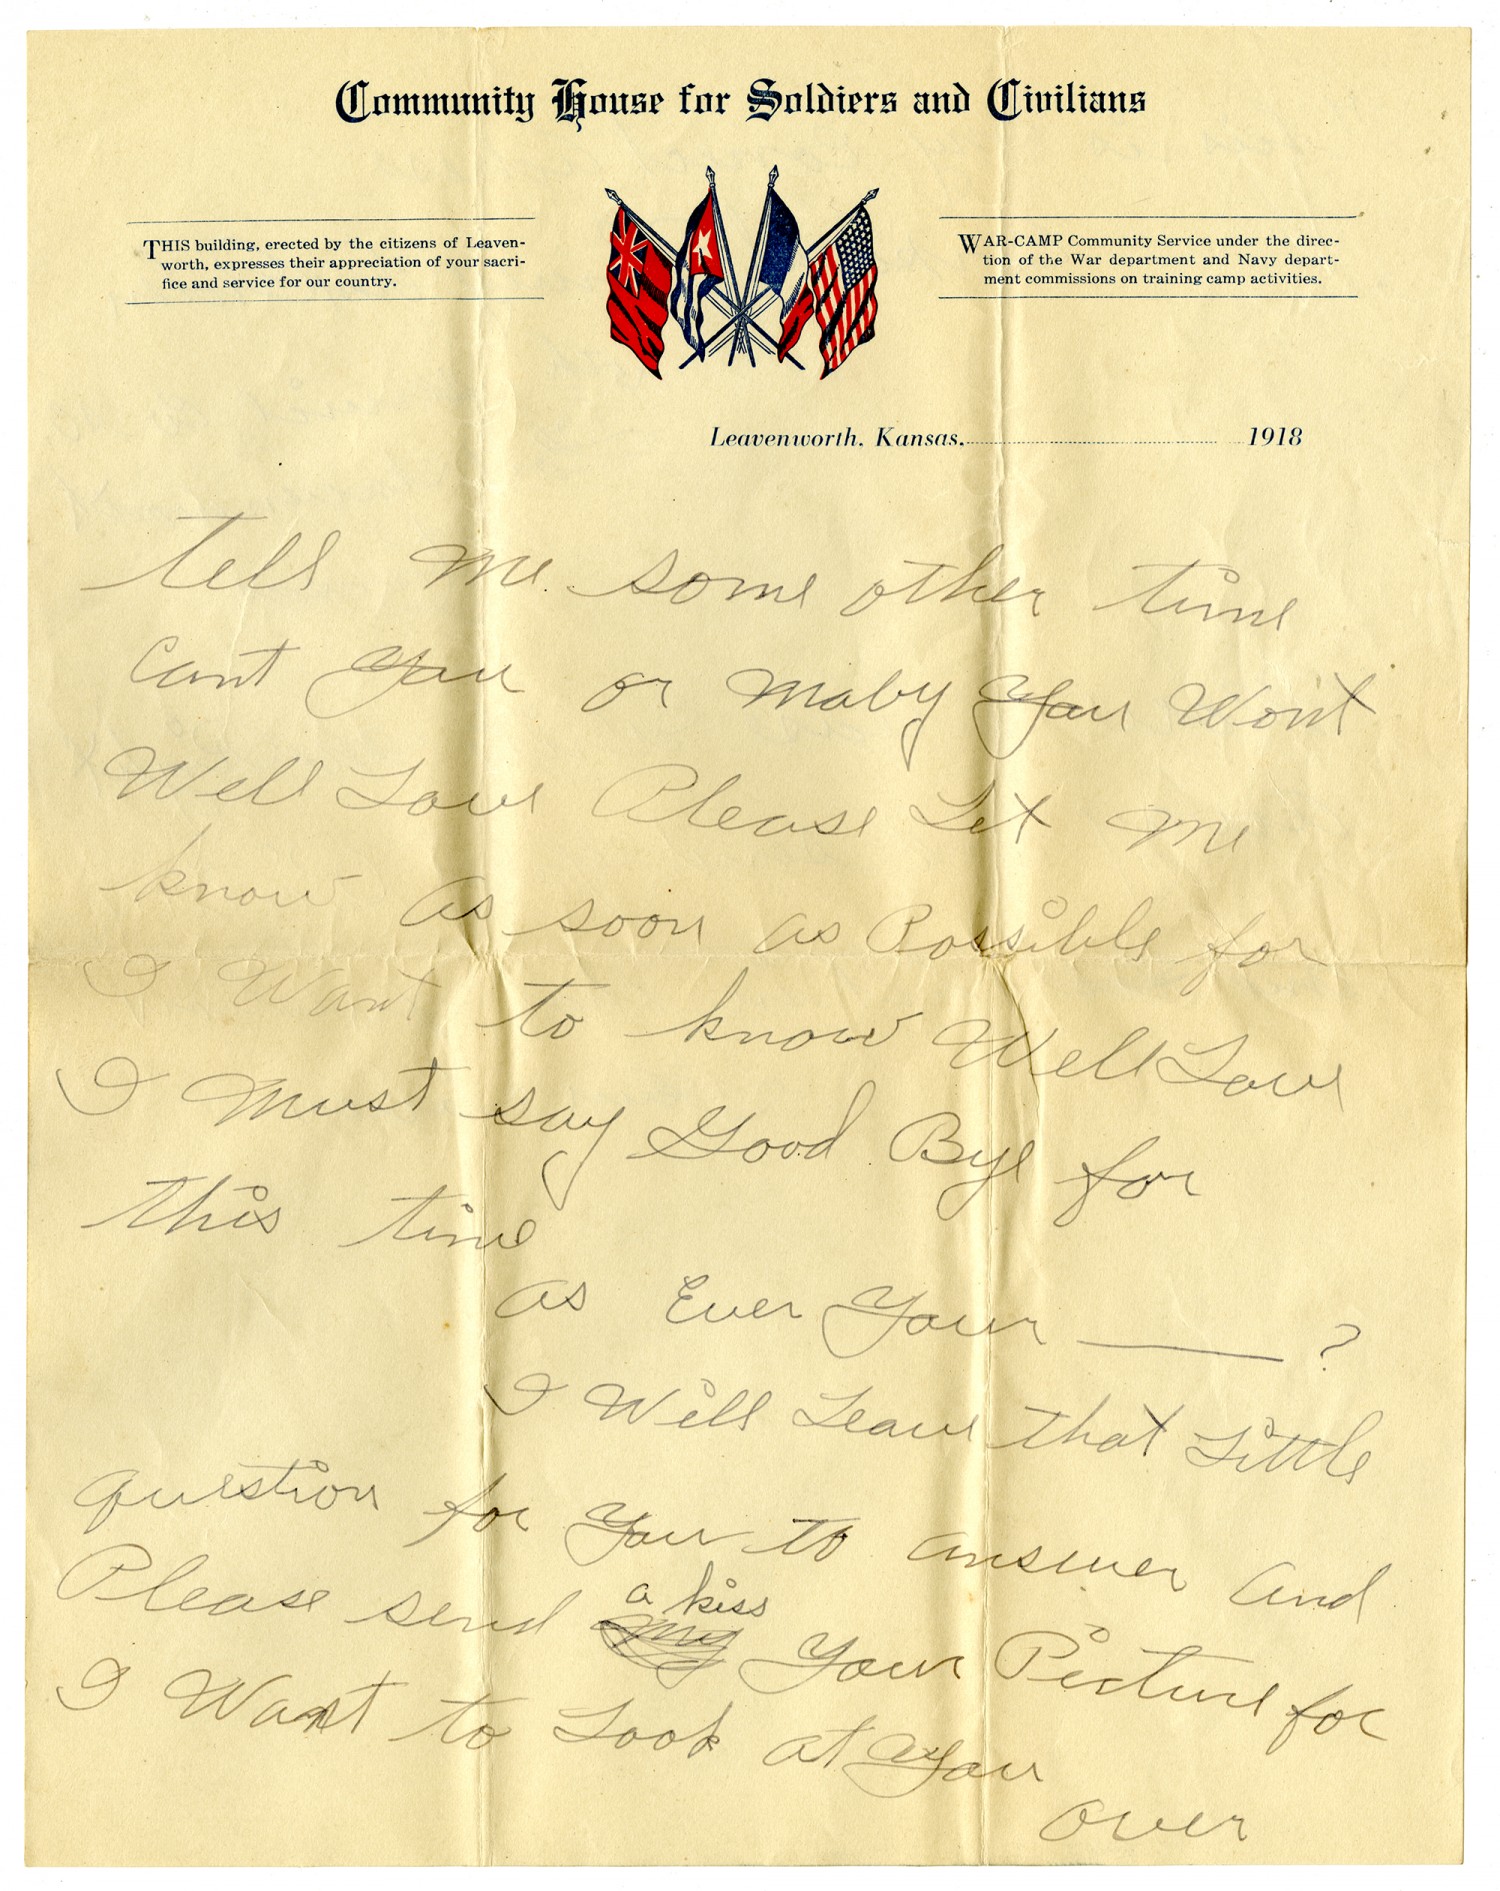 Community House for Soldiers and Civilians
THIS building, erected by the citizens of Leaven-
worth, expresses their appreciation of your sacri-
fice and service for our country.
WAR-CAMP Community Service under the direc-
tion of the War department and Navy depart-
ment commissions on training camp activities.
Leavenworth, Kansas, 1918
tell me some other time
Cant You or maby You Wont
Well Love Please Let me
know as soon as Possible for
I Want to know Well Love
I Must say Good Bye for
this time
as Ever Your ——— ?
I Will Leave that Little
question for You to answer and
a kiss
Please send my Your Picture for
I Want to Look at You
over